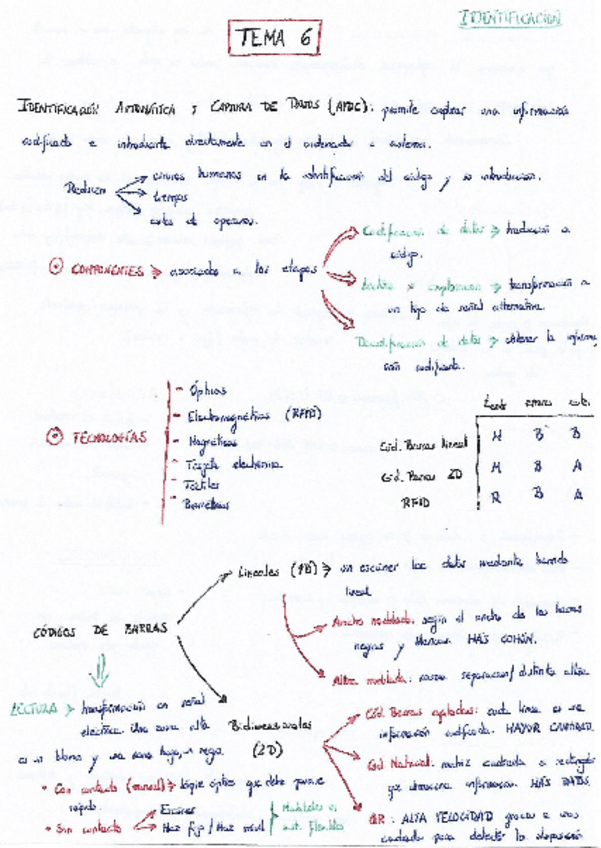 IDENTIFICACIÓN
TEMA 6
IDENTIFICACIÓN AUTOMÁTICA Y CAPTURA DE DATOS (AIDC): permite captar una información
codificada e introducirla directamente en el ordenador o sistema.
Reducen
errores humanos en la identificación del código y su introducción.
tiempos
costes de operarios.
COMPONENTES → asociados a las etapas
Codificación de datos → traducción a
código.
→ transformación a
un tipo de señal alternativa.
Decodificación de datos → obtener la informa
ción codificada.
TECNOLOGÍAS
- Ópticas
- Electromagnéticas (RFID)
- Magnéticas
- Tarjeta electrónica
- Táctiles
- Biométricas
errores
Cód. Barras lineal M B B
Cód. Barras 2D M B A
RFID R B A
CÓDIGOS DE BARRAS
Lineales (1D) → un escáner lee datos mediante barrido
lineal
Ancho modulado: según el ancho de las barras
negras y blancas MÁS COMÚN.
Altura modulada: misma separación/distinta altura
LECTURA → transformación en señal
eléctrica. Una zona alta
es un blanco y una zona baja, un negro.
Bidimensionales
(2D)
Cód. Barras apilados: cada línea es una
información codificada. MAYOR CANTIDAD
Cód Matricial: matriz cuadrada o rectangular
que almacena información. MÁS DATOS.
QR: ALTA VELOCIDAD gracias a unos
cuadrados para detectar la
• Con contacto (manual) → lápiz óptico que debe pasarse
rápido.
• Sin contacto
Escáner
Haz fijo / Haz móvil
Flexibles